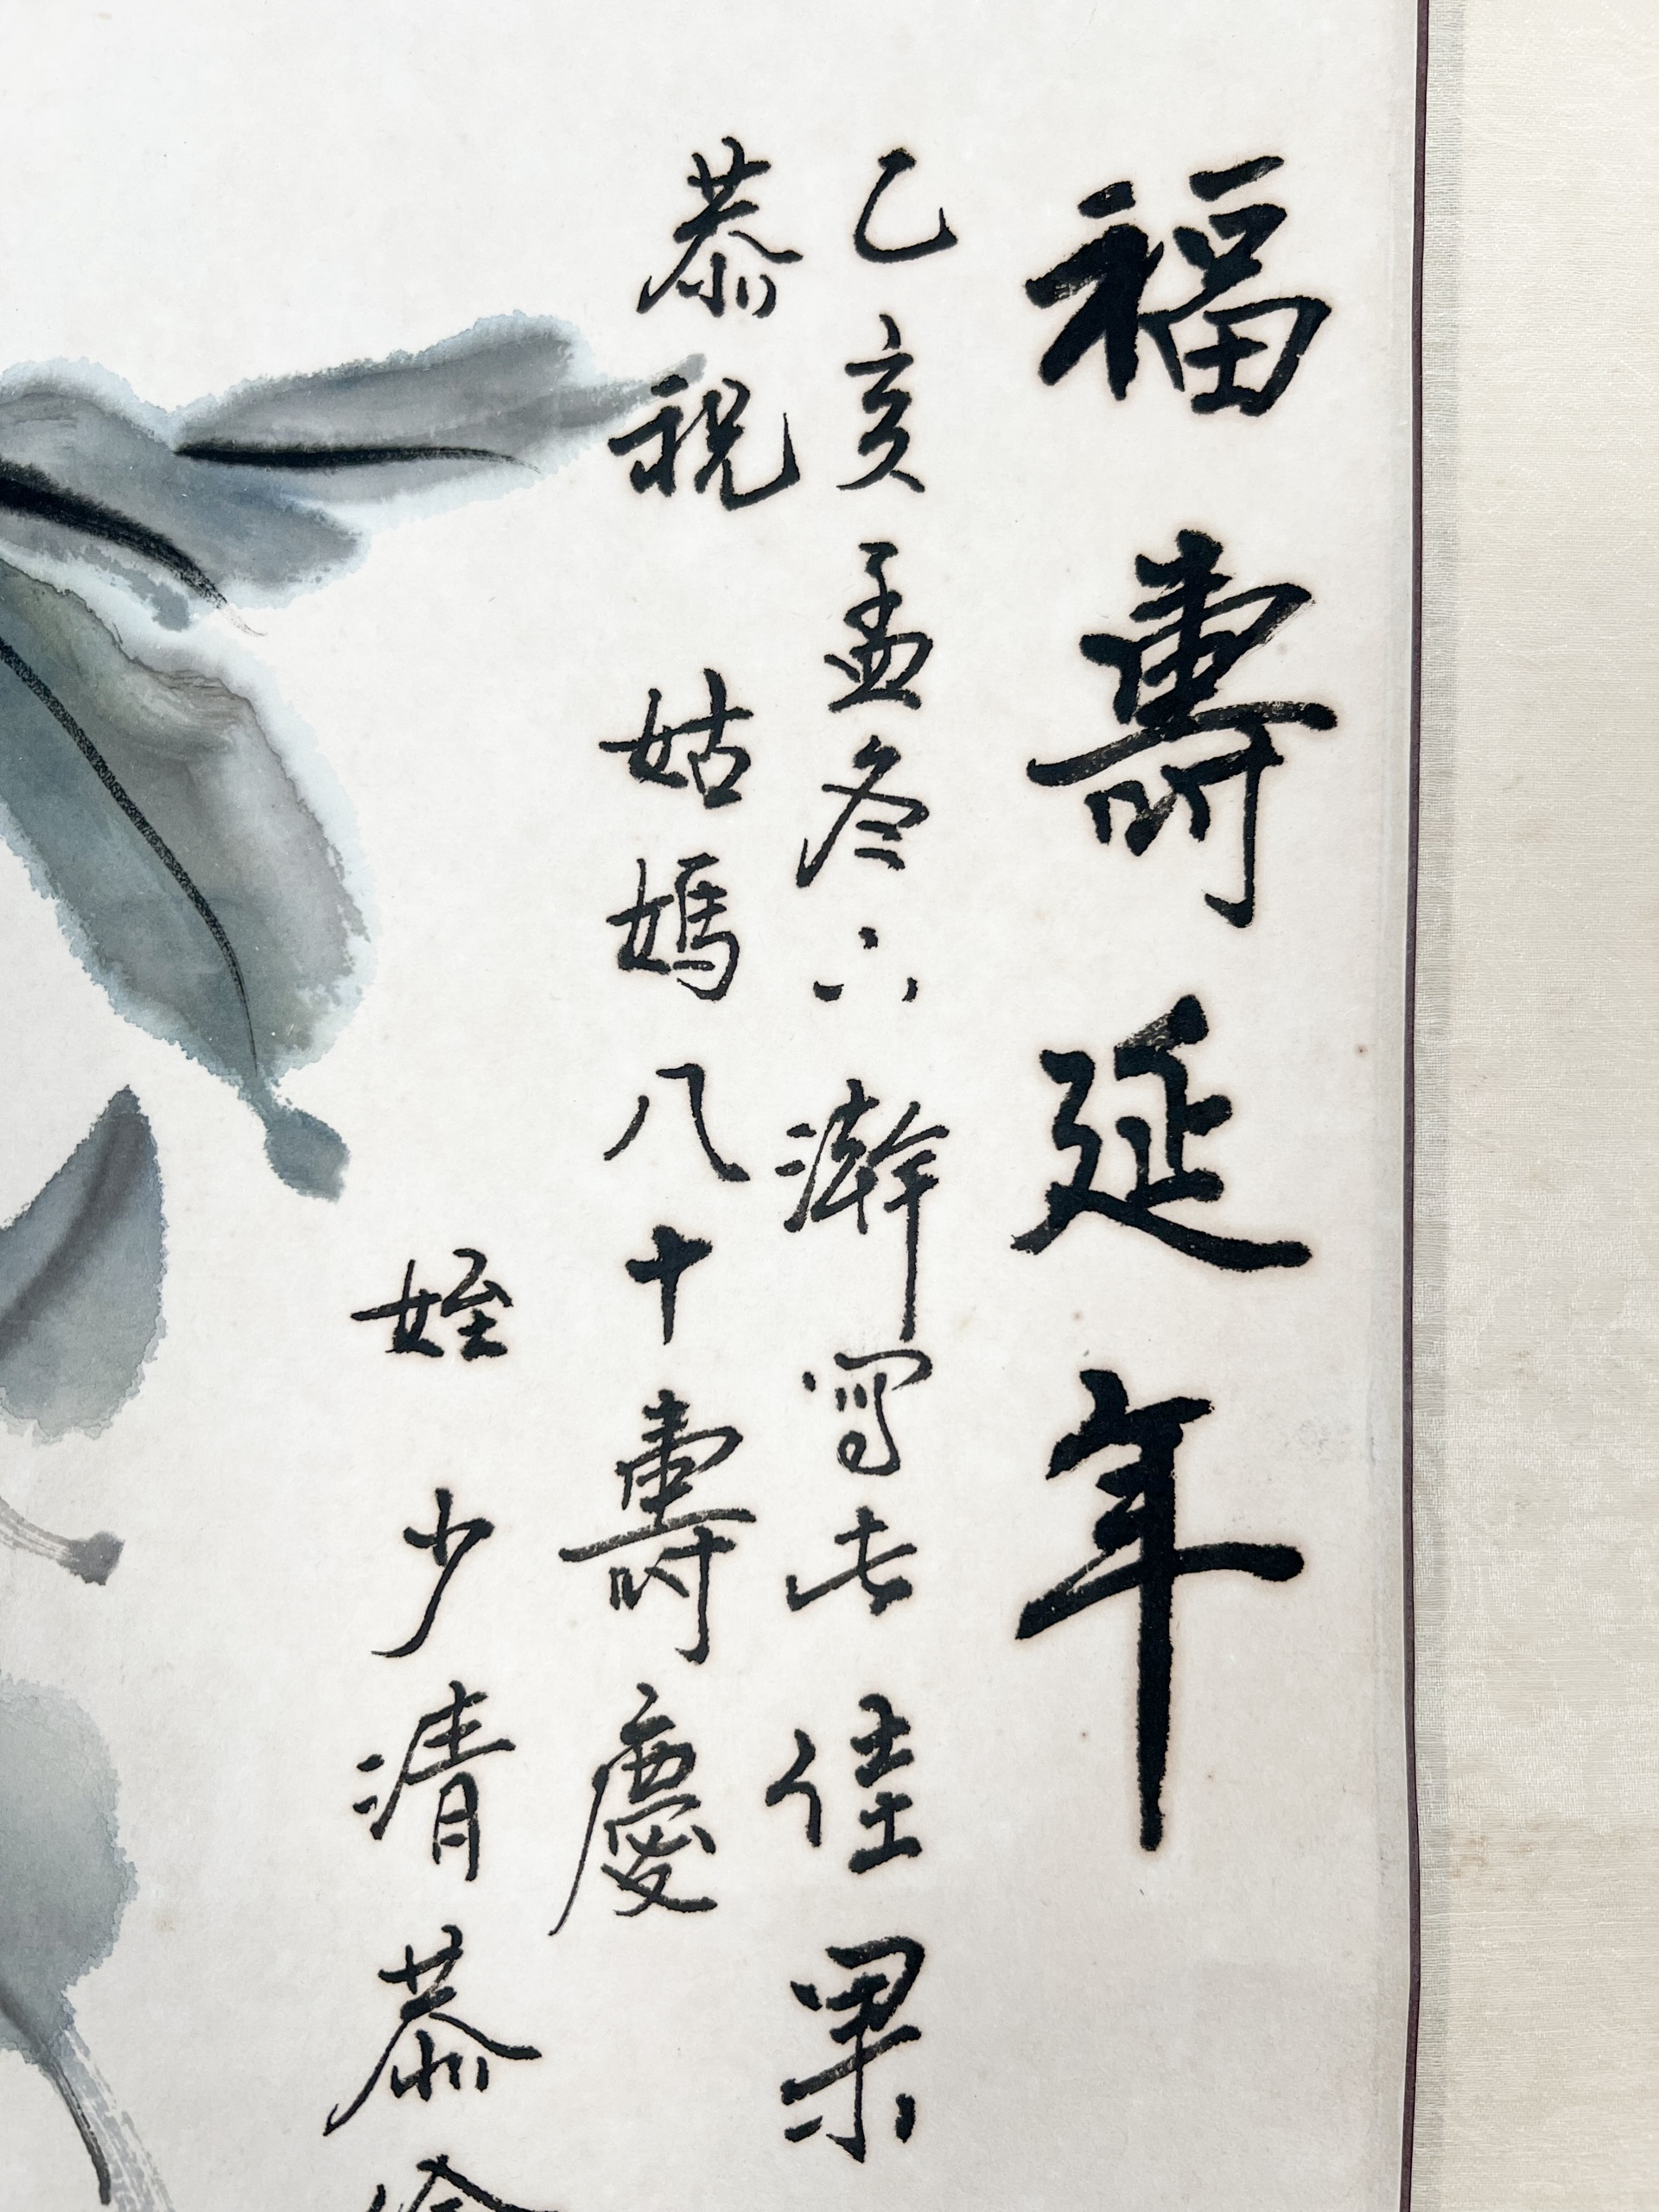 福壽延年
乙亥孟冬六瀚寫此佳果
恭祝 姑媽八十壽慶
姪 少清恭繪